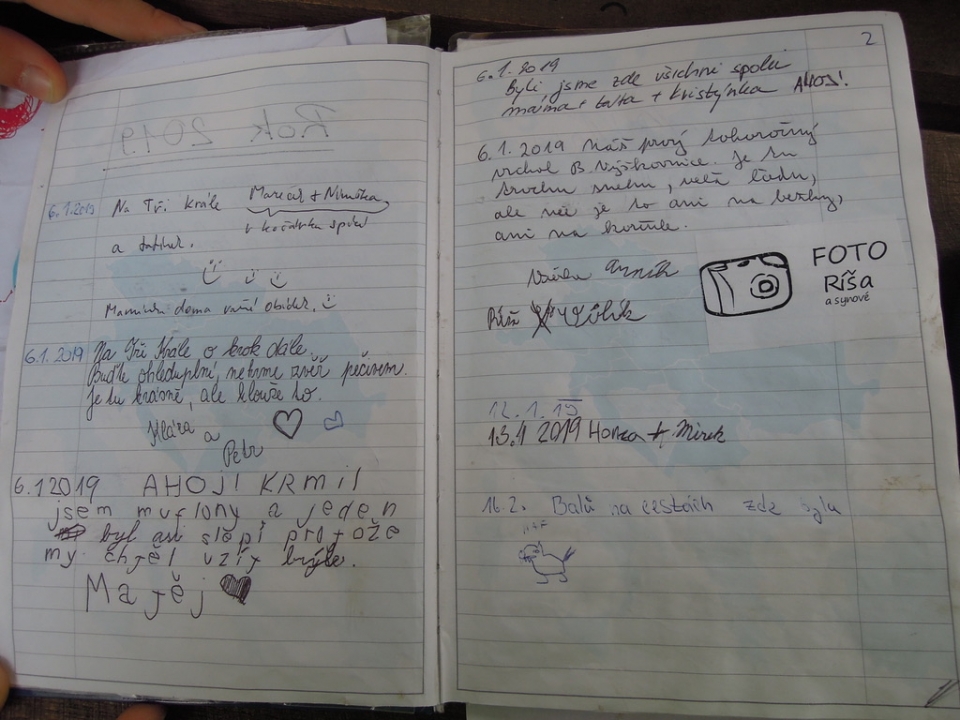 Rok 2019
6.1.2019 Na Tři krále Mareček + Ninuška,
v kočárku spolu
a tatínek.
Maminka doma vaří obídek.
6.1.2019 Na Tři Krále o krok dále.
Buďte ohleduplní, nekrmte zvěř pečivem.
Je tu krásně, ale klouže to.
Klára a
Petr
6.12019 AHOJ! KRmil
jsem muflony a jeden
byl asi slepí protože
my chtěl vzít brýle.
Matěj
2
6.1.2019
Byli jsme zde všichni spolu
máma + táta + Kristýnka AHOJ!
6.1.2019 Náš prvý tohoročný
vrchol B. Je tu
trochu snehu, veľa ľadu,
ale nie je to ani na bežky,
ani na korčule.
FOTO
Ríša
a synově
12.1.19
13.1 2019 Honza + Mirek
16.2. Balů na cestách zde byla
HAF